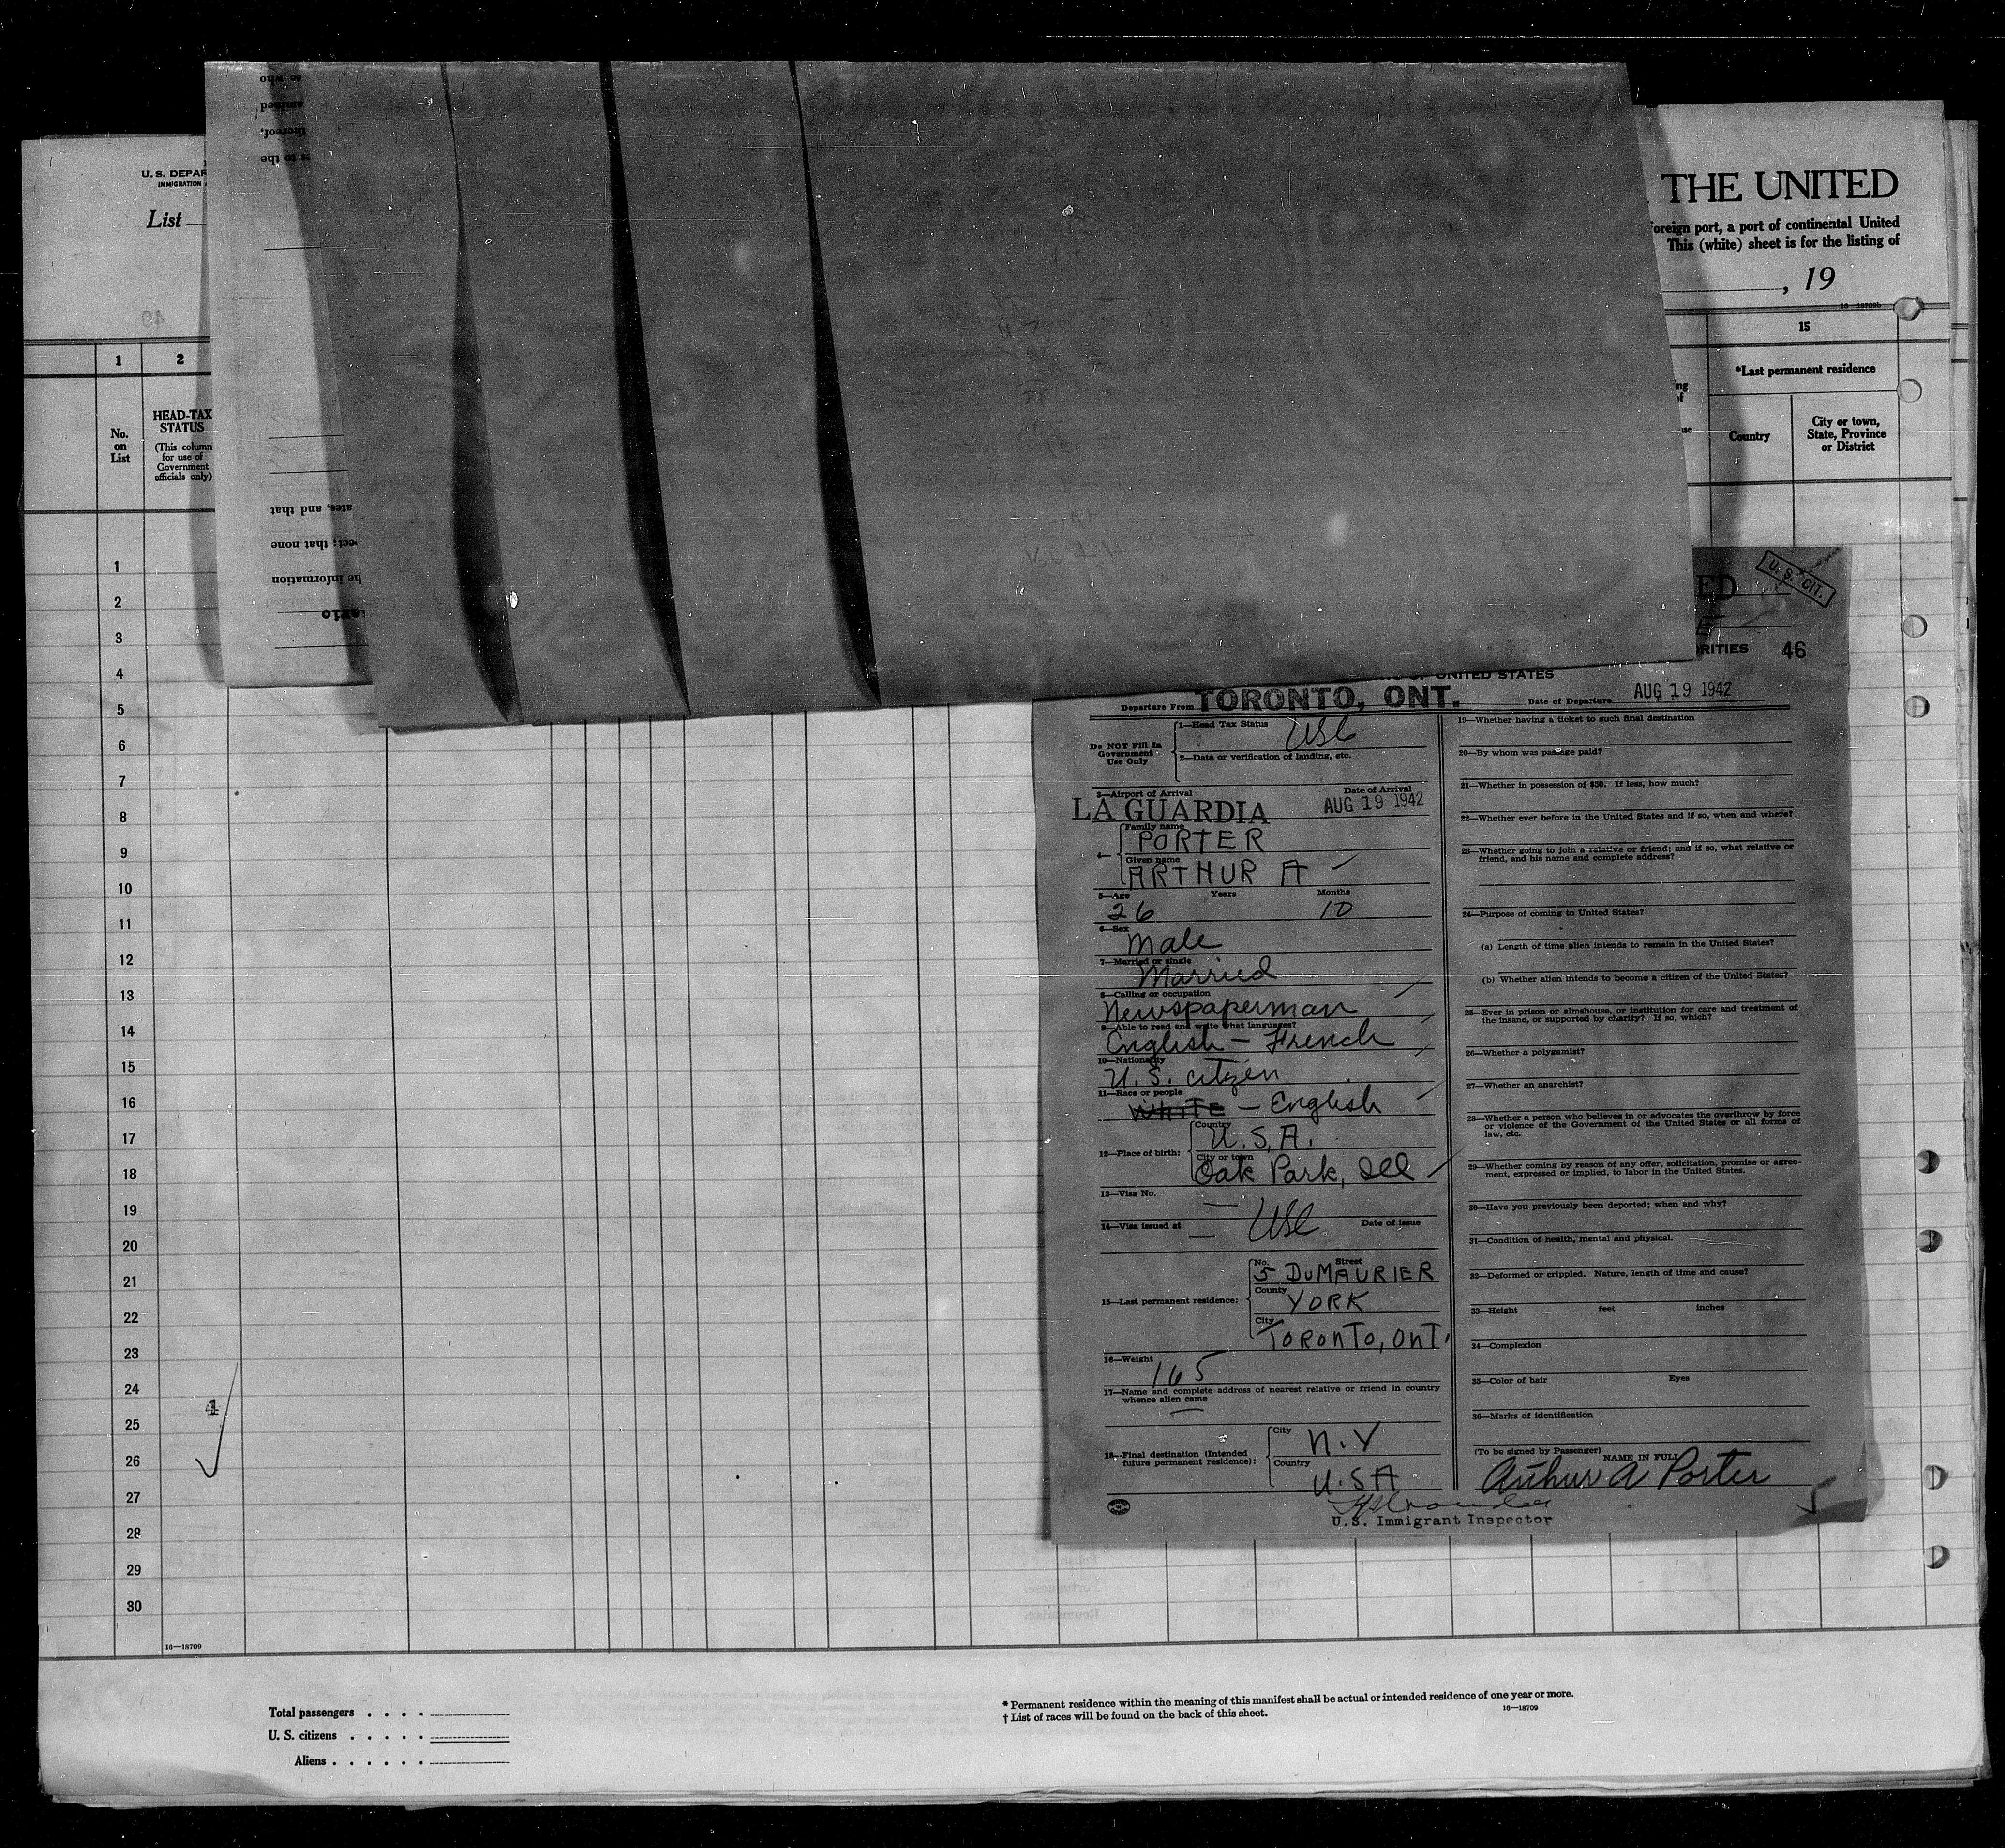 U. S. DEPAR
IMMIGRATION
List
THE UNITED
foreign port, a port of continental United
This (white) sheet is for the listing of
, 19
16—18709b
49
1
2
15
*Last permanent residence
No.
on
List
HEAD-TAX
STATUS
(This column
for use of
Government
officials only)
Country
City or town,
State, Province
or District
so who
thereof,
as to the
ates, and that
ect; that none
he information
ario
1
2
3
4
5
6
7
8
9
10
11
12
13
14
15
16
17
18
19
20
21
22
23
24
25
26
27
28
29
30
16—18709
ED
U. S. CIT.
RITIES 46
OF UNITED STATES
Departure From TORONTO, ONT.
Date of Departure AUG 19 1942
Do NOT Fill In
Government
Use Only
1—Head Tax Status
USC
2—Data or verification of landing, etc.
3—Airport of Arrival
LA GUARDIA
Date of Arrival
AUG 19 1942
4—
Family name
PORTER
Given name
ARTHUR A
5—Age Years Months
26 10
6—Sex
Male
7—Married or single
Married
8—Calling or occupation
Newspaperman
9—Able to read and write what languages?
English — French
10—Nationality
U. S. citizen
11—Race or people
White — English
12—Place of birth:
Country
U.S.A.
City or town
Oak Park, Ill
13—Visa No.
—
14—Visa issued at Date of issue
— USC
15—Last permanent residence:
No. Street
5 DuMAURIER
County
YORK
City
TORONTO, ONT.
16—Weight
165
17—Name and complete address of nearest relative or friend in country
whence alien came
—
18—Final destination (Intended
future permanent residence):
City
N.Y
Country
U.S A
19—Whether having a ticket to such final destination
20—By whom was passage paid?
21—Whether in possession of $50. If less, how much?
22—Whether ever before in the United States and if so, when and where?
23—Whether going to join a relative or friend; and if so, what relative or
friend, and his name and complete address?
24—Purpose of coming to United States?
(a) Length of time alien intends to remain in the United States?
(b) Whether alien intends to become a citizen of the United States?
25—Ever in prison or almshouse, or institution for care and treatment of
the insane, or supported by charity? If so, which?
26—Whether a polygamist?
27—Whether an anarchist?
28—Whether a person who believes in or advocates the overthrow by force
or violence of the Government of the United States or all forms of
law, etc.
29—Whether coming by reason of any offer, solicitation, promise or agree-
ment, expressed or implied, to labor in the United States.
30—Have you previously been deported; when and why?
31—Condition of health, mental and physical.
32—Deformed or crippled. Nature, length of time and cause?
33—Height feet inches
34—Complexion
35—Color of hair Eyes
36—Marks of identification
(To be signed by Passenger)
NAME IN FULL
Arthur A Porter
5
U.S. Immigrant Inspector
Total passengers . . . .
U. S. citizens . . . . .
Aliens . . . . . .
* Permanent residence within the meaning of this manifest shall be actual or intended residence of one year or more.
† List of races will be found on the back of this sheet.
16—18709